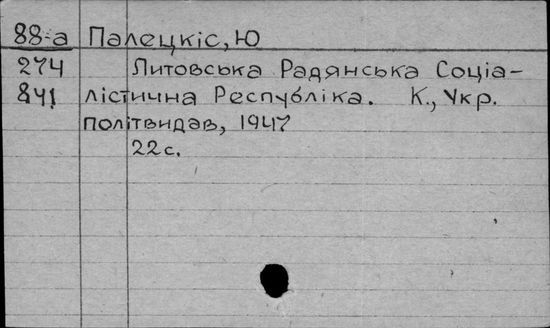 88-а Палецкіс, Ю
274 Литовська Радянська Соціа-
841 лістична Республіка. К., Укр.
політвидав, 1947
22 с.